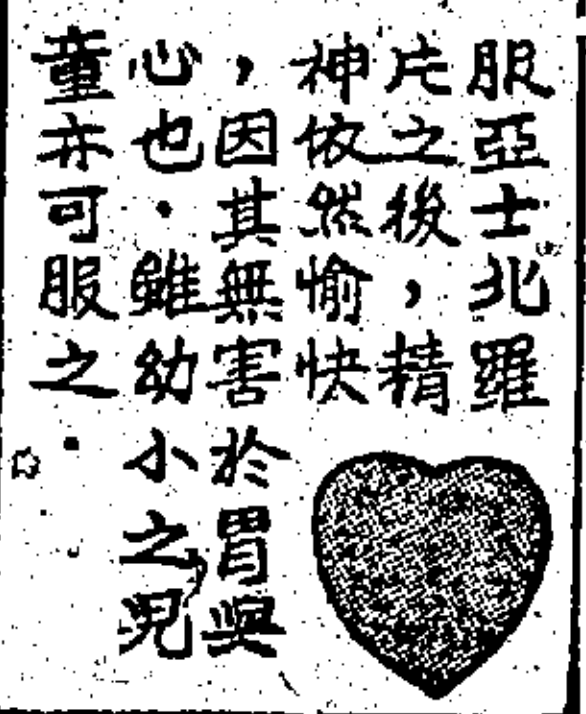 服亞士北羅
片之後，精
神依然愉快
，因其無害於胃與
心也．雖幼小之兒
童亦可服之．